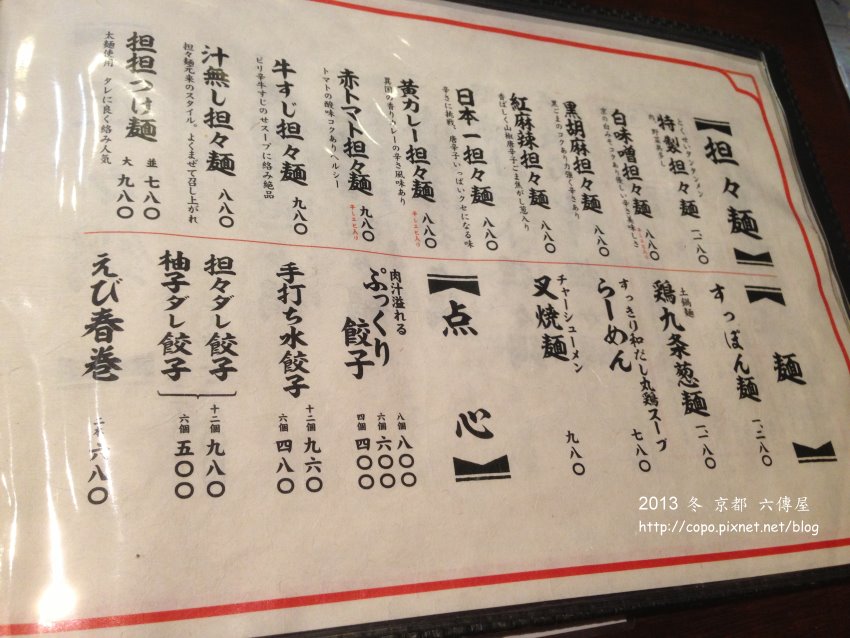 担々麺
とくせいタンタンメン
特製担々麺 一、一八〇
白味噌担々麺 八八〇
黒胡麻担々麺 八八〇
黒ごまのコクあり力強く辛さあり
紅麻辣担々麺 八八〇
香ばしく山椒唐辛子ごま焦がし葱入り
日本一担々麺 八八〇
辛さに挑戦、唐辛子いっぱいクセになる味
黄カレー担々麺 八八〇
異国の香りカレーの辛さ風味あり
干しエビ入り
赤トマト担々麺 九八〇
トマトの酸味コクありヘルシー
干しエビ入り
牛すじ担々麺 九八〇
ピリ辛牛すじのせスープに絡み絶品
汁無し担々麺 八八〇
担々麺元来のスタイル。よくまぜて召し上がれ
担担つけ麺 並 七八〇
大 九八〇
太麺使用 タレに良く絡み人気
麺
すっぽん麺 一、二八〇
土鍋麺
鶏九条葱麺 一、二八〇
すっきり和だし丸鶏スープ
らーめん 七八〇
チャーシューメン
叉焼麺 九八〇
点心
肉汁溢れる
ぷっくり餃子 八個 八〇〇
六個 六〇〇
四個 四〇〇
手打ち水餃子 十二個 九六〇
六個 四八〇
担々ダレ餃子
柚子ダレ餃子
十二個 九八〇
六個 五〇〇
えび春巻 二本 六八〇
2013 冬 京都 六傳屋
http://copo.pixnet.net/blog